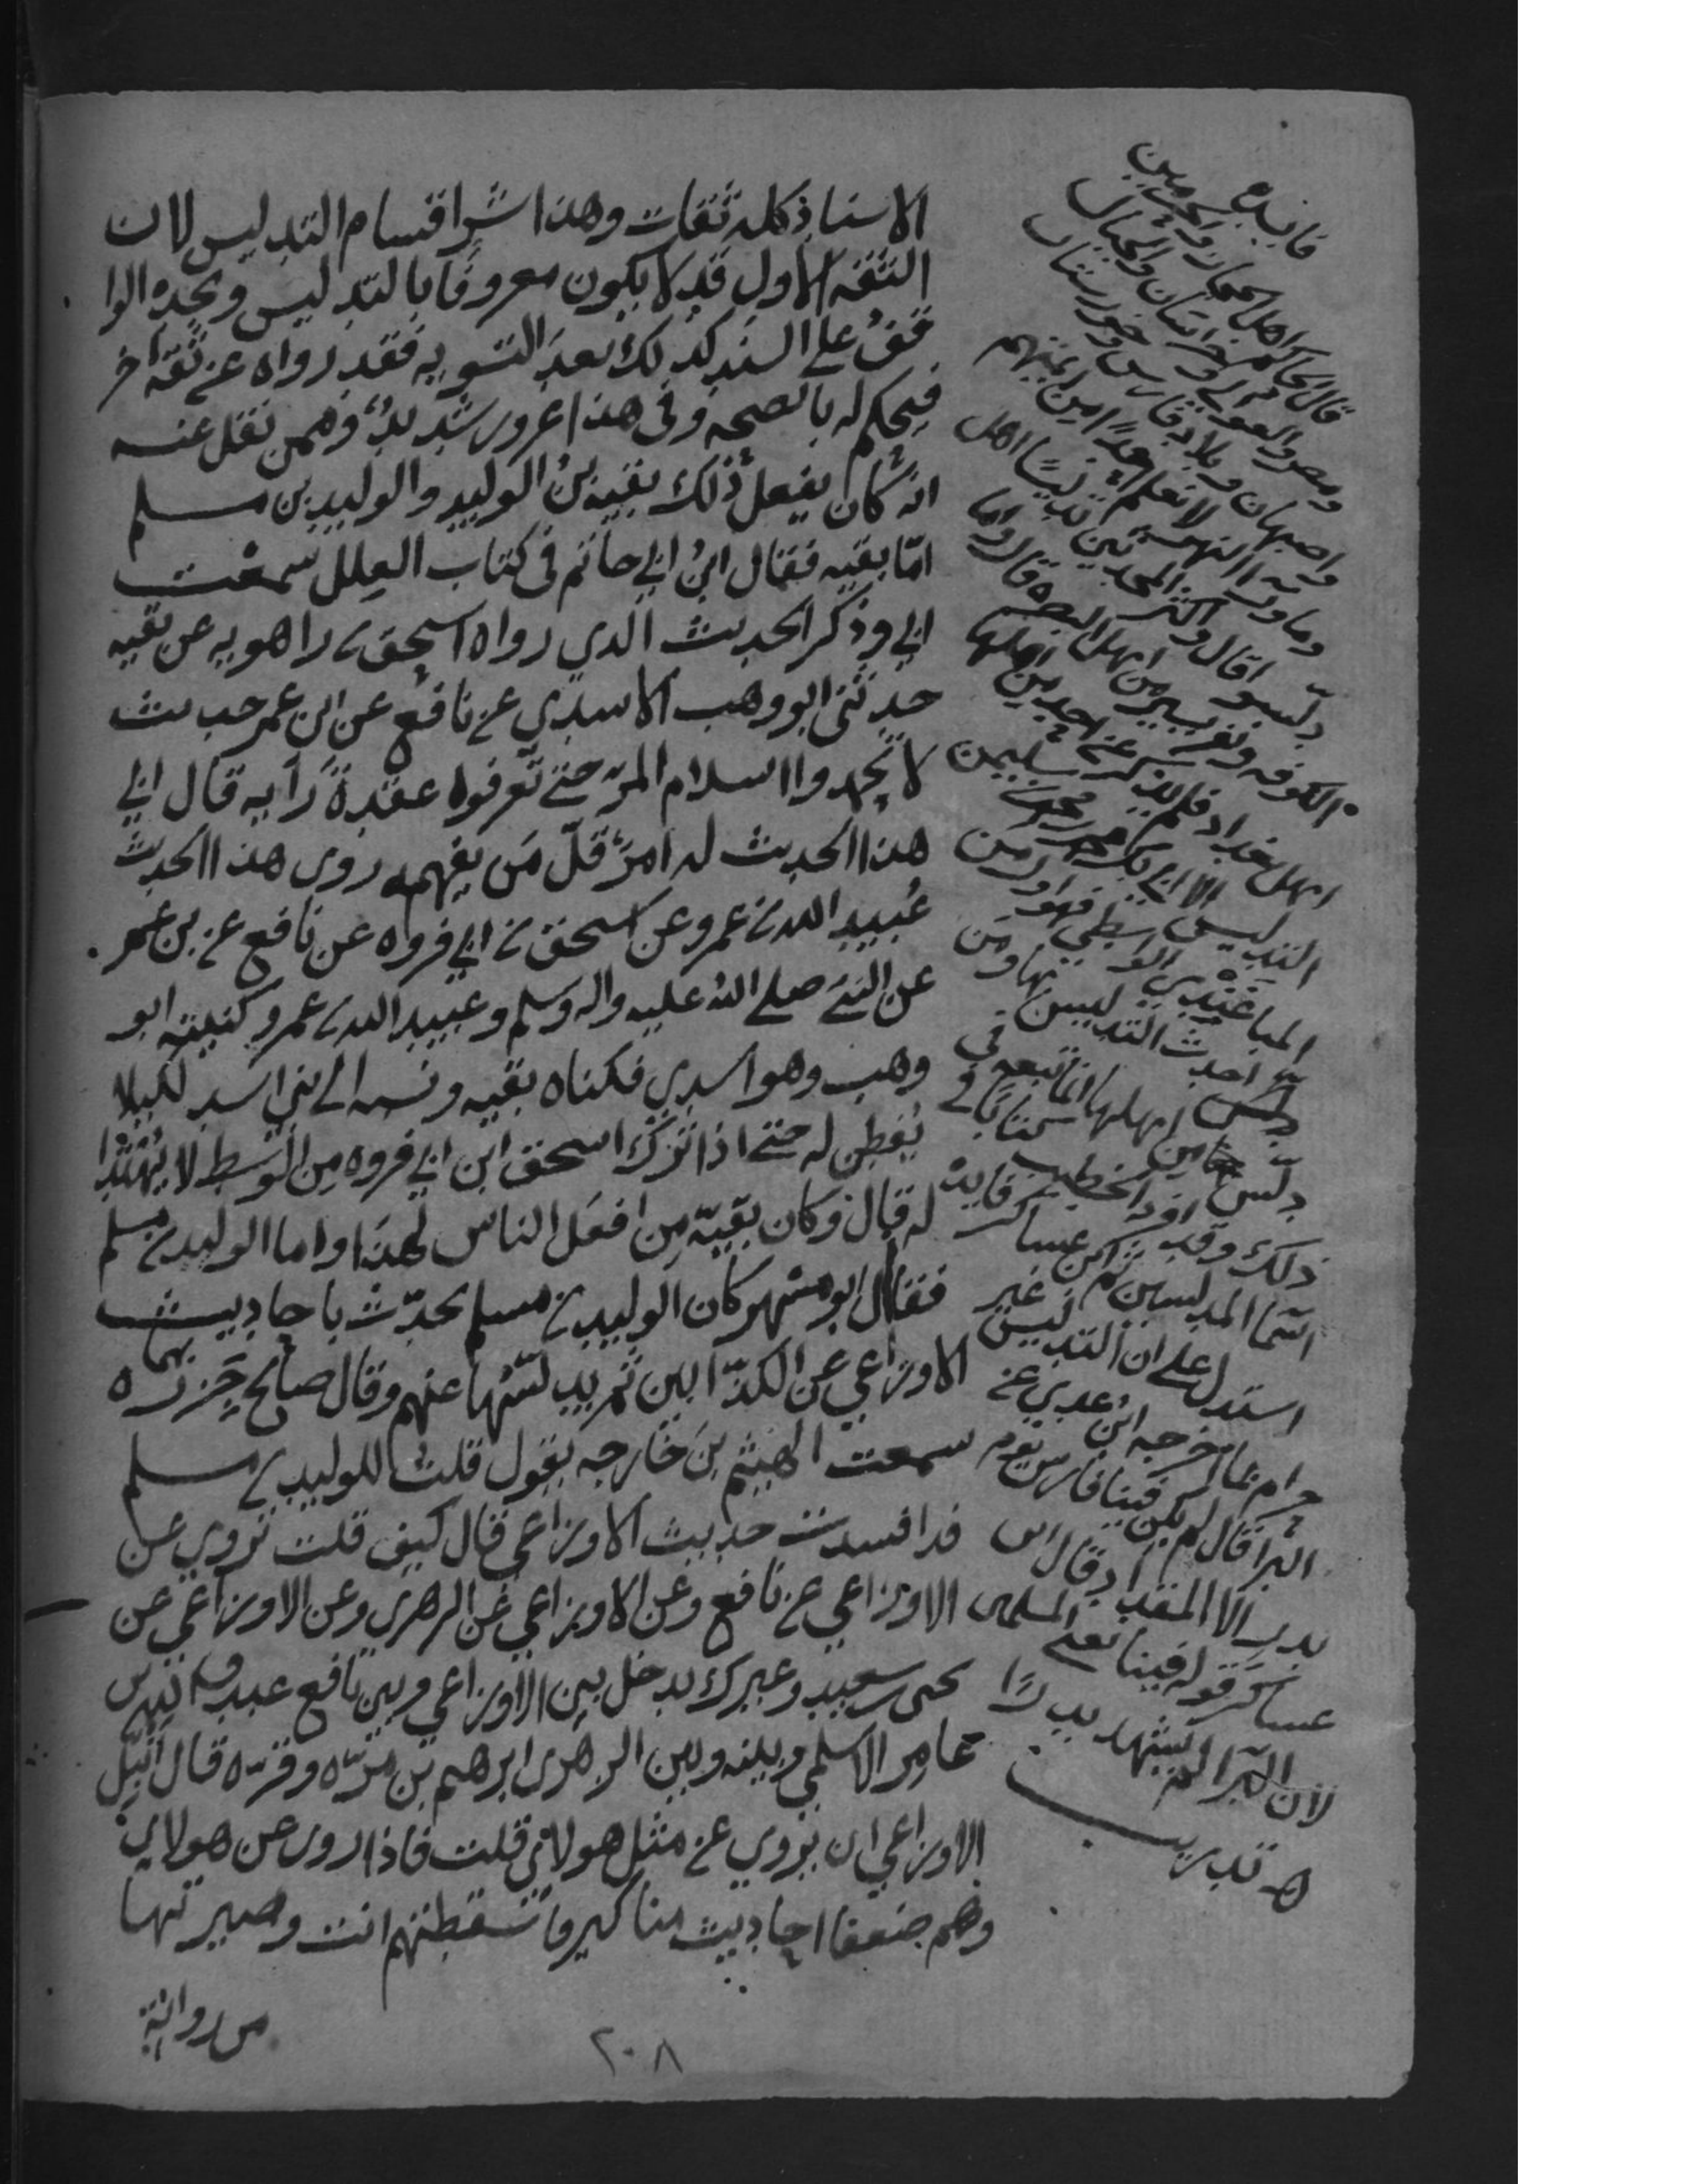 الاسناد كله ثقات وهذا شر اقسام التدليس لان
الثقة الاول قد لا يكون معروفا بالتدليس ويجده الوا
قف على السند كذلك بعد التسويه فقد رواه عن ثقة آخر
فيحكم له بالصحه وفي هذا غرور شديد وممن نقل عنه
انه كان يفعل ذلك بقيه بن الوليد والوليد بن مسلم
امّا بقيه فقال ابن ابي حاتم في كتاب العلل سمعت
ابي وذكر الحديث الذي رواه اسحق بن راهويه عن بقيه
حدثني ابو وهب الاسدي عن نافع عن ابن عمر حديث
لا تحمدوا اسلام المرء حتى تعرفوا عقدة رأيه قال ابي
هذا الحديث له امر قلّ مَن يفهمه روى هذا الحديث
عُبيد الله بن عمرو عن اسحق بن ابي فروه عن نافع عن بن عمر
عن النبي صلى الله عليه واله وسلم وعبيد الله بن عمرو كنيته ابو
وهب وهو اسدي فكناه بقيه ونسبه الى بني اسد لكيلا
يُفطن له حتى اذا ترك اسحق ابن ابي فروه من الوسط لا يُهْتَدا
له قال وكان بقيّه من افعل الناس لهذا واما الوليد بن مسلم
فقال ابو مسهر كان الوليد بن مسلم يحدّث باحاديث
الاوزاعي عن الكذّابين ثم يدلّسها عنهم وقال صالح جزره
سمعت الهيثم بن خارجه يقول قلت للوليد بن مسلم
قد افسدت حديث الاوزاعي قال كيف قلت تروي عن
الاوزاعي عن نافع وعن الاوزاعي عن الزهري وعن الاوزاعي عن
يحيى بن سعيد وغيرك يدخل بين الاوزاعي وبين نافع عبد الله بن
عامر الاسلمي وبينه وبين الزهري ابرهيم بن مرّه وقرّه قال انبّل
الاوزاعي ان يروي عن مثل هولاي قلت فاذا روى عن هولاي
وهم ضعفا احاديث مناكير فاسقطتهم انت وصيرتها
من رواية
٢٠٨
فايده
قال الحاكم اهل الحجاز والحرمين
ومصر والعوالي وخراسان والجبال
واصبهان وبلاد فارس وخوزستان
وما وراء النهر لا نعلم احدًا من ايمتهم
دلسوا قال واكثر المحدثين تدليسًا اهل
الكوفه ونفر يسير من اهل البصره قال واما
اهل بغداد فلم يذكر عن احد من اهلها
التدليس الا ابي بكر محمد بن محمد بن سليمن
الباغندي الواسطي فهو اول من
احدث التدليس بها ومن
دلّس من اهلها انما تبعه في
ذلك وقد افرد الخطيب كتابا في
اسما المدلسين ثم ابن عساكر فايدة
استدل على ان التدليس غير
حرام بما اخرجه ابن عدي عن
البرا قال لم يكن فينا فارس يوم
بدر الا المقداد قال ابن
عساكر قوله فينا يعني المسلمين
لان البرا لم يشهد بدرًا
اهـ تدريب